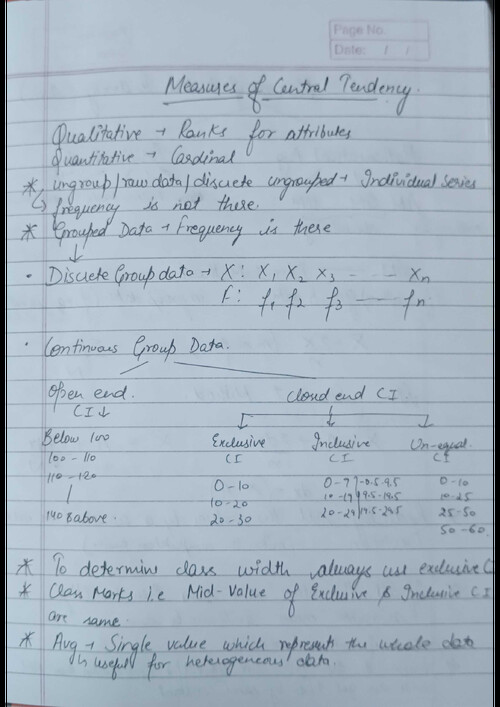 Page No.
Date: / /
Measures of Central Tendency.
Qualitative → Ranks for attributes
Quantitative → Cardinal
* ungroup/raw data/discrete ungrouped → Individual series
↳ frequency is not there.
* Grouped Data → Frequency is there
↓
• Discrete Group data → X: X1 X2 X3 ---- Xn
F: f1 f2 f3 —— fn.
• Continuous Group Data.
Open end. Closed end CI.
CI ↓
Below 100 Exclusive Inclusive Un-equal.
100 - 110 CI CI CI
110 - 120 0-10 0-9 | -0.5-9.5 0-10
| 10-20 10-19 | 9.5-19.5 10-25
140 & above. 20-30 20-29 | 19.5-29.5 25-50
50-60.
* To determine class width always use exclusive C
* Class Marks i.e Mid-Value of Exclusive & Inclusive CI
are same.
* Avg → Single value which represents the whole data
↳ useful for heterogeneous data.